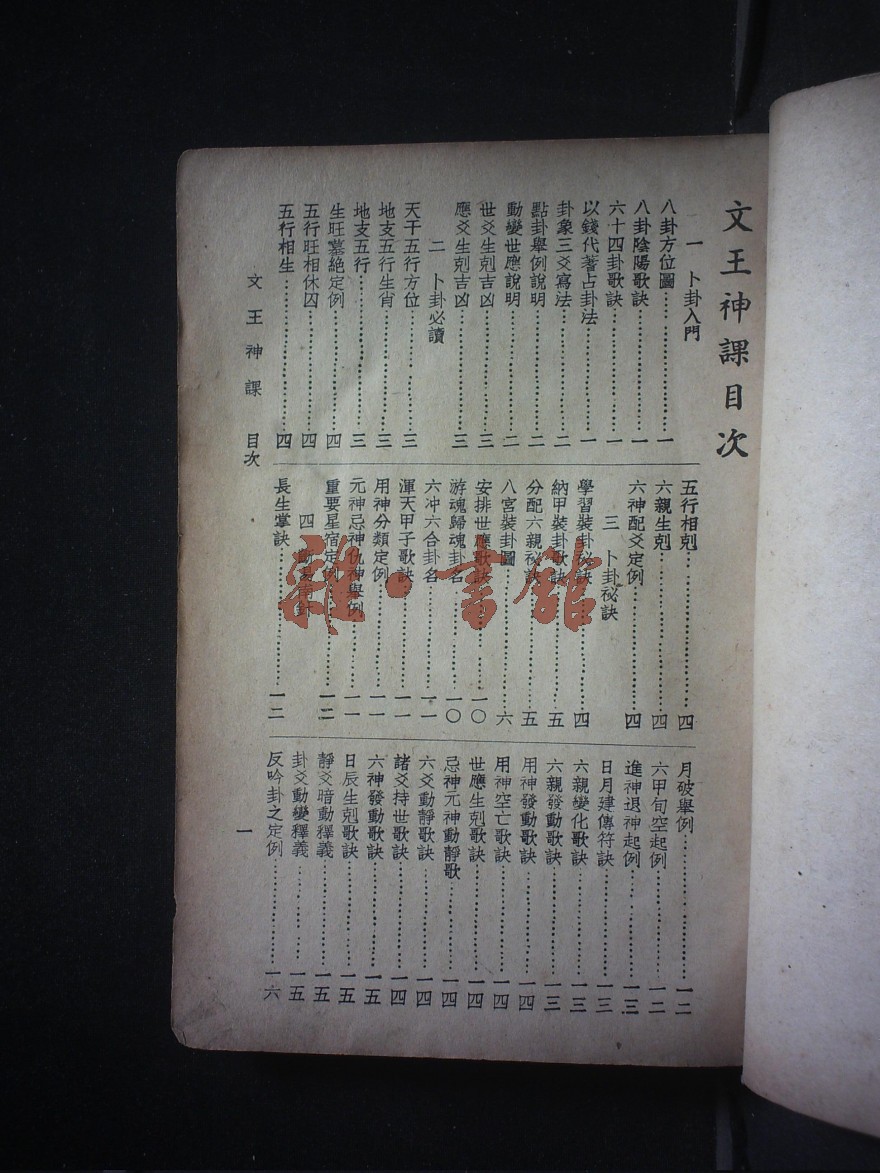 文王神課目次
一 卜卦入門
八卦方位圖……一
八卦陰陽歌訣……一
六十四卦歌訣……一
以錢代蓍占卦法……一
卦象三爻寫法……二
點卦舉例說明……二
動變世應說明……二
世爻生剋吉凶……三
應爻生剋吉凶……三
二 卜卦必讀
天干五行方位……三
地支五行生肖……三
地支五行……三
生旺墓絕定例……四
五行旺相休囚……四
五行相生……四
五行相剋……四
六親生剋……四
六神配爻定例……四
三 卜卦祕訣
學習裝卦祕訣……四
納甲裝卦歌訣……五
分配六親祕訣……五
八宮裝卦圖……六
安排世應歌訣……一〇
游魂歸魂卦名……一〇
六冲六合卦名……一一
渾天甲子歌訣……一一
用神分類定例……一一
元神忌神仇神舉例……一一
重要星宿定例……一二
四 斷易指針
長生掌訣……一二
月破舉例……一二
六甲旬空起例……一二
進神退神起例……一三
日月建傳符訣……一三
六親變化歌訣……一三
六親發動歌訣……一三
用神發動歌訣……一四
用神空亡歌訣……一四
世應生剋歌訣……一四
忌神元神動靜歌……一四
六爻動靜歌訣……一四
諸爻持世歌訣……一四
六神發動歌訣……一五
日辰生剋歌訣……一五
靜爻暗動釋義……一五
卦爻動變釋義……一五
反吟卦之定例……一六
文王神課 目次
一
雜·書館